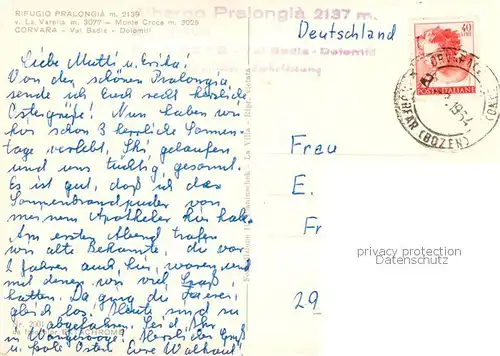 RIFUGIO PRALONGIÀ m. 2139
v. La Varella m. 3077 - Monte Croce m. 2025
CORVARA - Val Badia - Dolomiti
Albergo Pralongià 2137 m.
Val Badia - Dolomiti
Deutschland
40
POSTE ITALIANE
(BOZEN)
Liebe Mutti u. Erika!
Von der schönen Pralongia
sende ich Euch recht herzliche
Ostergrüße! Nun haben wir
hier schon 3 herrliche Sonnen-
tage verlebt, Ski gelaufen
und uns tüchtig gesonnt.
Es ist gut, daß ich das
Sonnenbrandpuder von
meinem Apotheker hier habe.
Am ersten Abend trafen
wir alte Bekannte, die vor
2 Jahren auch hier waren und
mit denen wir viel Spaß
hatten. Da ging die Feierei
gleich los. Heute sind sie
abgefahren. Seid Ihr
in Wangerooge? Herzliche Grüße
u. frohe Ostern Eure
Frau
E.
Fr
29
privacy protection
Datenschutz